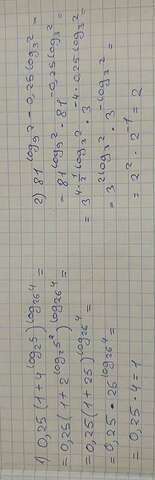 1) 0,25 (1 + 4^{log_2 5})^{log_{26} 4} =
= 0,25 (1 + 2^{log_2 5^2})^{log_{26} 4} =
= 0,25 (1 + 25)^{log_{26} 4} =
= 0,25 · 26^{log_{26} 4} =
= 0,25 · 4 = 1
2) 81^{log_9 2 - 0,25 log_3 2} =
= 81^{log_9 2} · 81^{-0,25 log_3 2} =
= 3^{4 · \frac{1}{2} log_3 2} · 3^{-4 · 0,25 log_3 2} =
= 3^{2 log_3 2} · 3^{-log_3 2} =
= 2^2 · 2^{-1} = 2